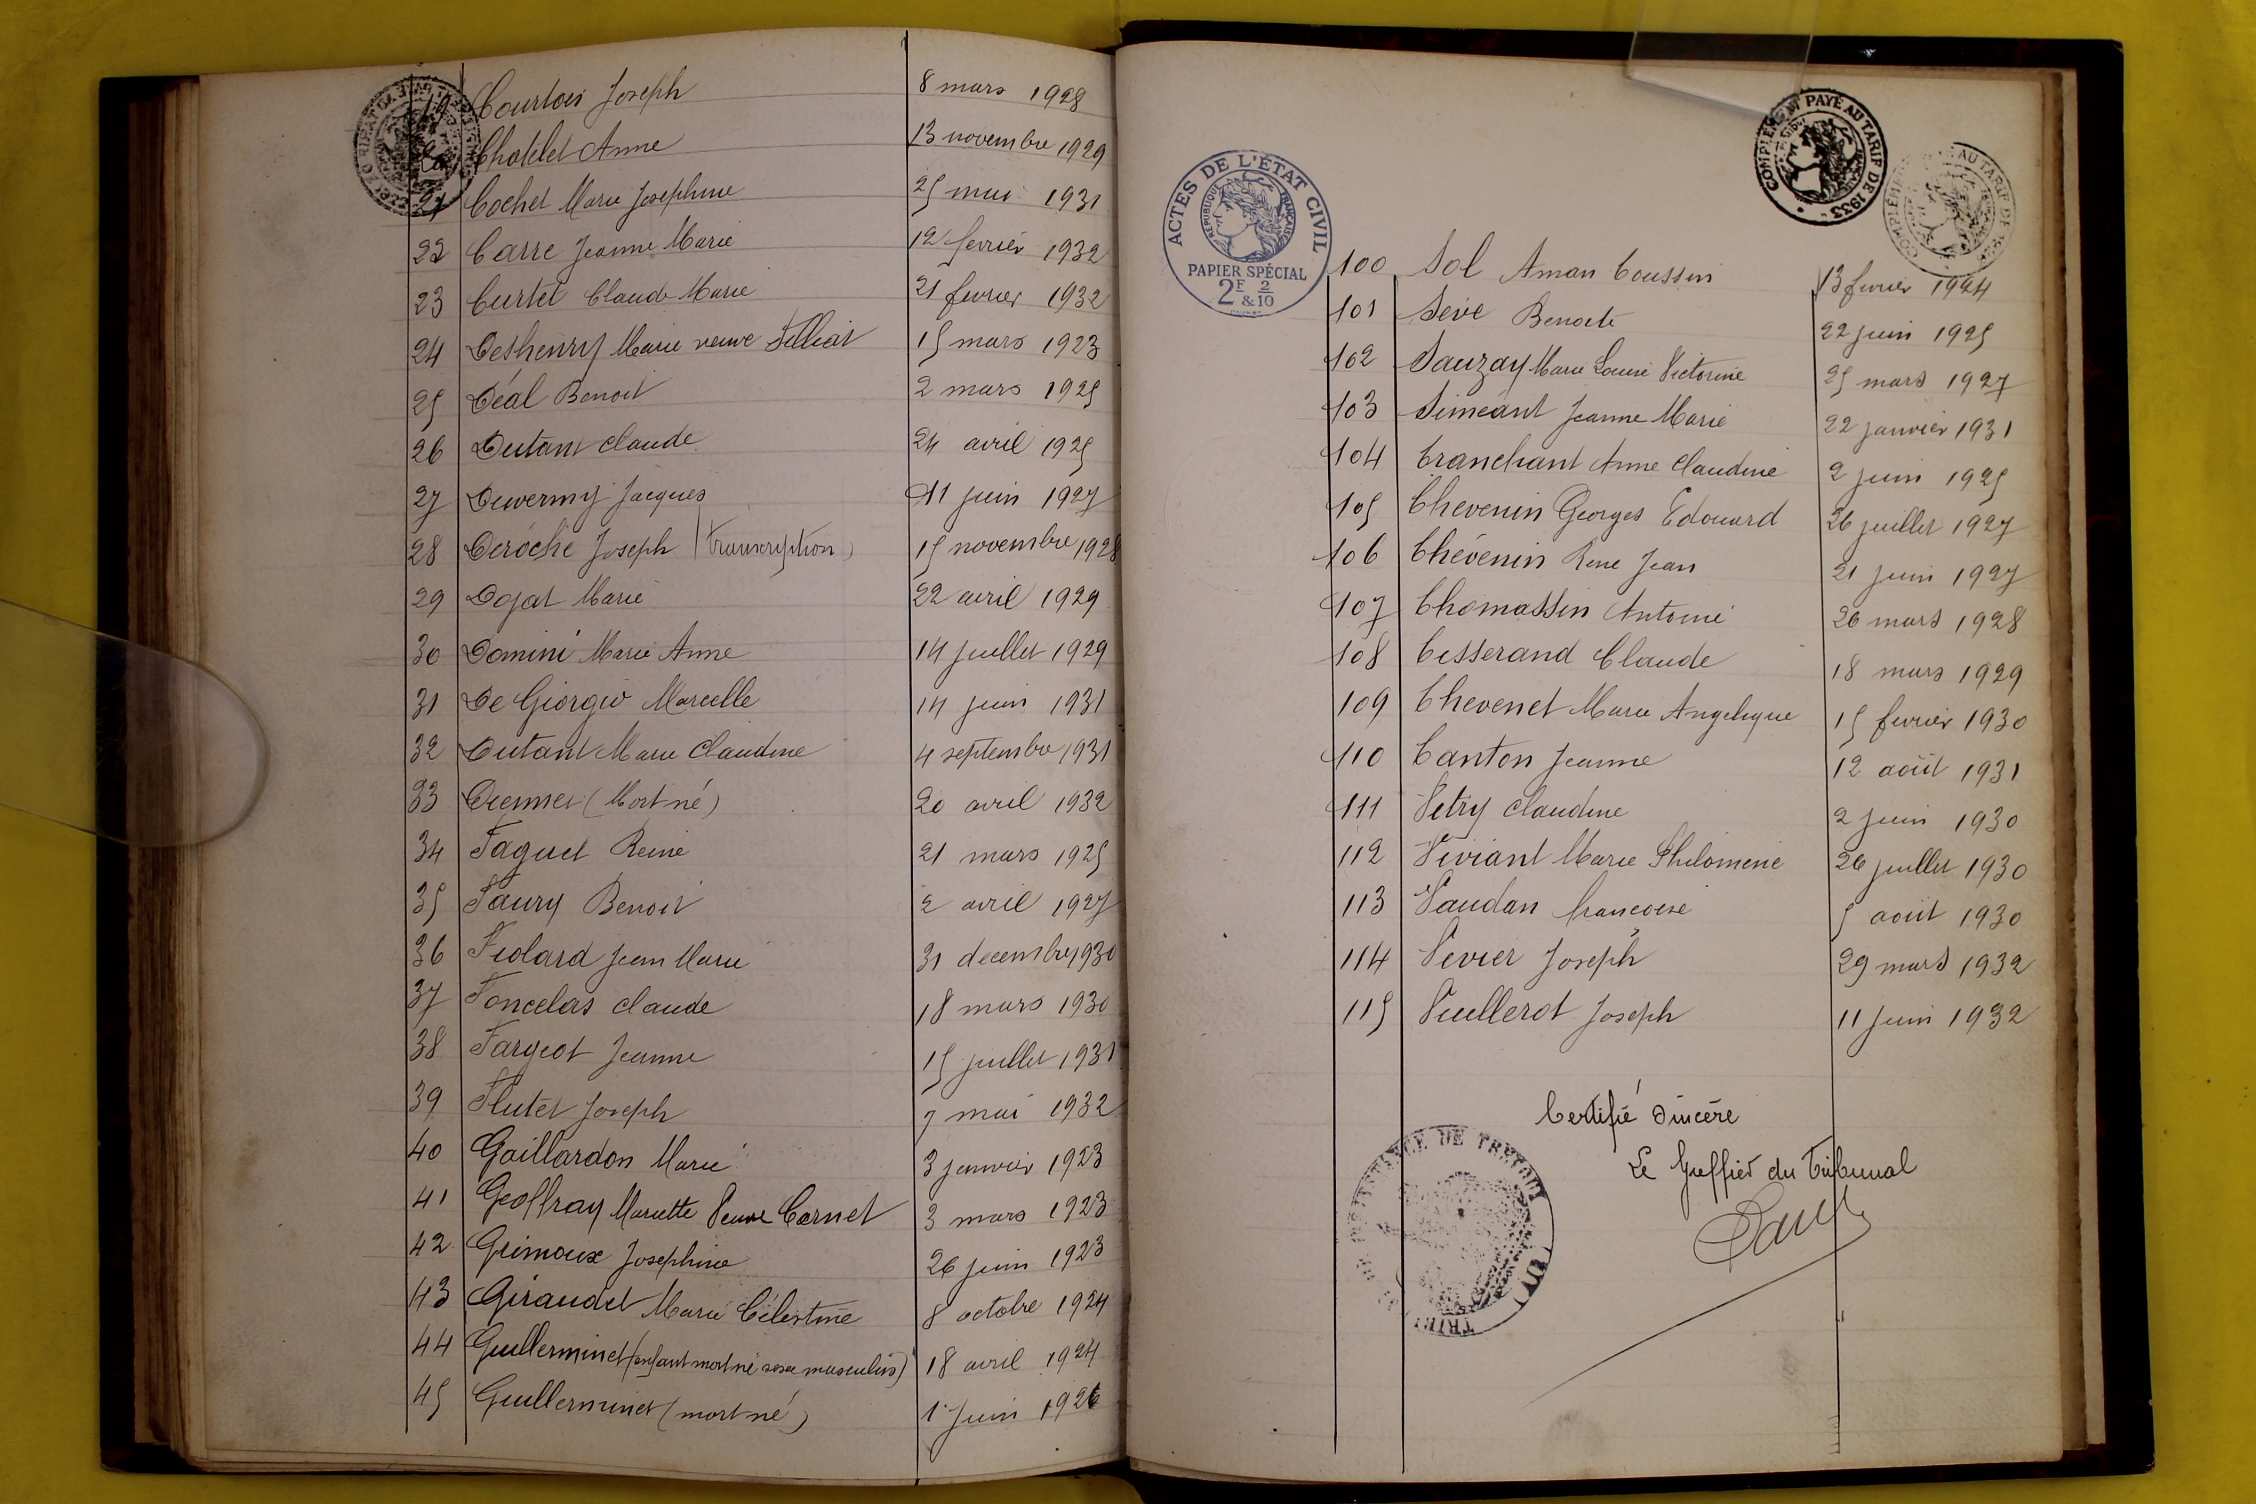 19 Courtois Joseph 8 mars 1928
20 Chatelet Anne 13 novembre 1929
21 Cochet Marie Josephine 25 mai 1931
22 Carre Jeanne Marie 12 fevrier 1932
23 Curtet Claude Marie 21 fevrier 1932
24 Deshenry Marie veuve 15 mars 1923
25 Déal Benoit 2 mars 1925
26 Dutant Claude 24 avril 1925
27 Duvermy Jacques 11 juin 1927
28 Deroche Joseph (transcription) 15 novembre 1928
29 Dojat Marie 22 avril 1929
30 Domini Marie Anne 14 juillet 1929
31 De Giorgio Marcelle 14 juin 1931
32 Dutant Marie Claudine 4 septembre 1931
33 (Mort né) 20 avril 1932
34 Faguet Reine 21 mars 1925
35 Faury Benoit 2 avril 1927
36 Fiolard Jean Marie 31 decembre 1930
37 Foncelas Claude 18 mars 1930
38 Fargeot Jeanne 15 juillet 1931
39 Flutet Joseph 7 mai 1932
40 Gaillardon Marie 3 janvier 1923
41 Geoffray Mariette Veuve Carnet 3 mars 1923
42 Grimoux Josephine 26 juin 1923
43 Giraudet Marie Célestine 8 octobre 1924
44 Guillerminet (enfant mort né sexe masculin) 18 avril 1924
45 Guillerminet (mort né) 1 Juin 1926
COMPLÉMENT PAYÉ AU TARIF DE 1933
ACTES DE L'ÉTAT CIVIL
RÉPUBLIQUE FRANÇAISE
PAPIER SPÉCIAL
2F 2/10
100 Sol Aman Coussin 13 fevrier 1924
101 Sève Benoite 22 juin 1925
102 Sauzay Marie Louise Victorine 25 mars 1927
103 Simeant Jeanne Marie 22 janvier 1931
104 Tranchant Anne Claudine 2 juin 1925
105 Thevenin Georges Edouard 26 juillet 1927
106 Thévenin Rene Jean 21 juin 1927
107 Thomassin Antoine 26 mars 1928
108 Tisserand Claude 18 mars 1929
109 Thevenet Marie Angelique 15 fevrier 1930
110 Tanton Jeanne 12 août 1931
111 Vetry Claudine 2 juin 1930
112 Viviant Marie Philomene 26 juillet 1930
113 Vaudan Francoise 5 août 1930
114 Vevier Joseph 29 mars 1932
115 Vuillerot Joseph 11 Juin 1932
Certifié sincère
Le Greffier du Tribunal